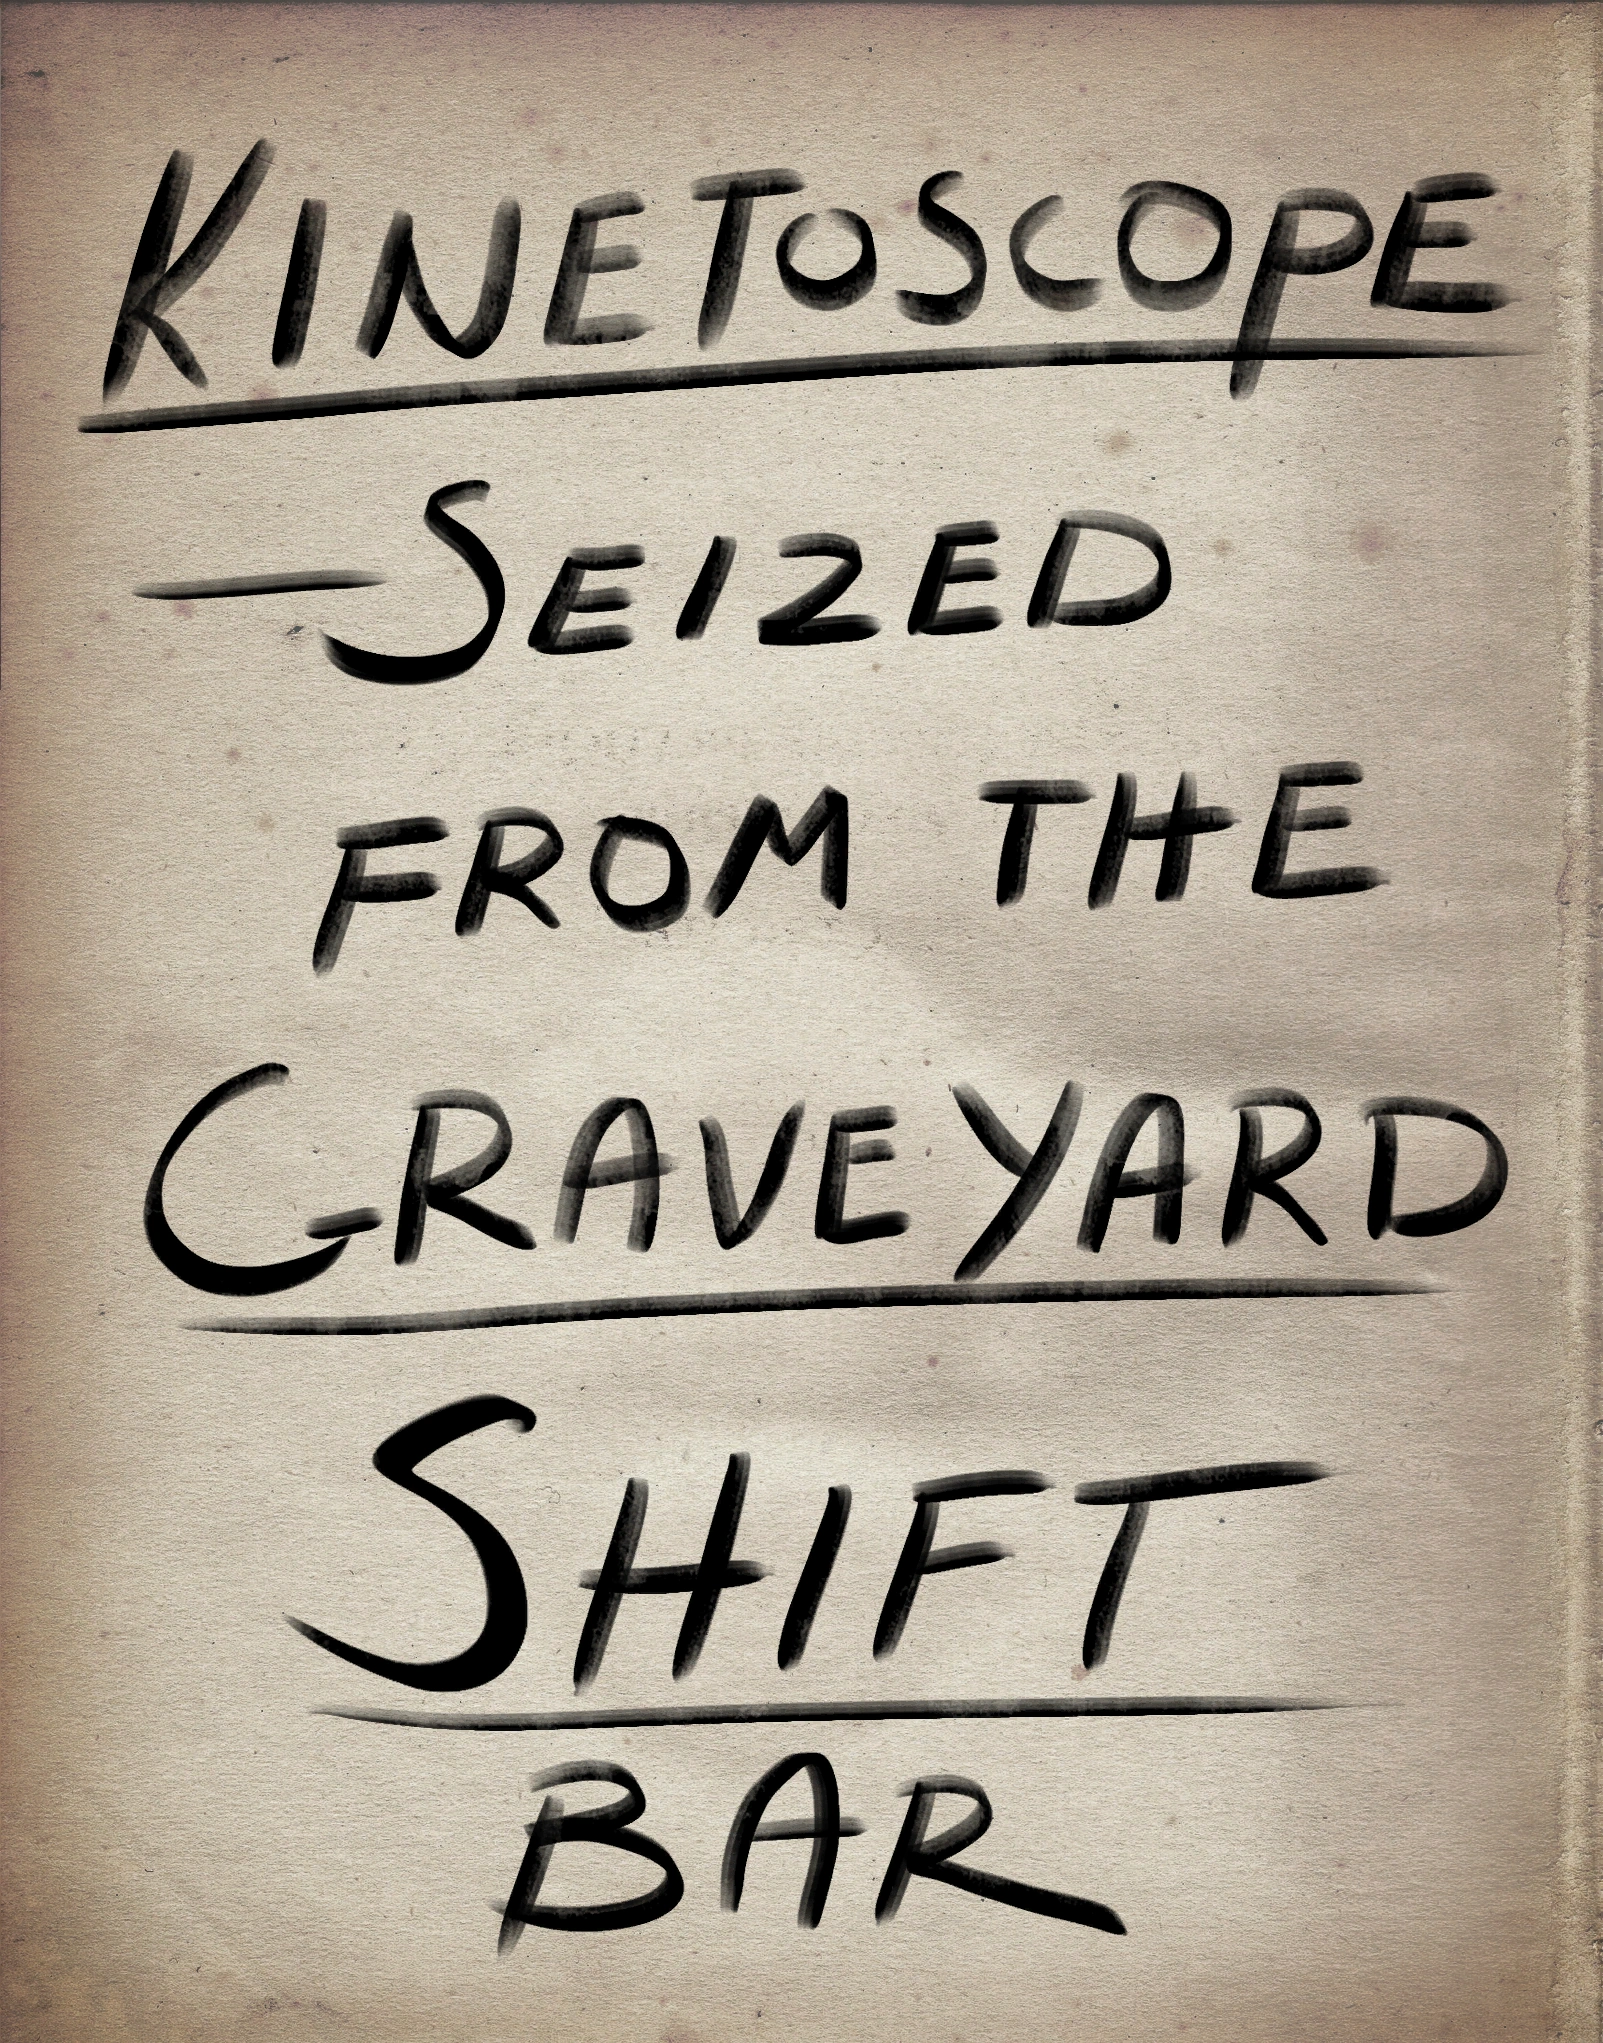 KINETOSCOPE
—SEIZED
FROM THE
GRAVEYARD
SHIFT
BAR